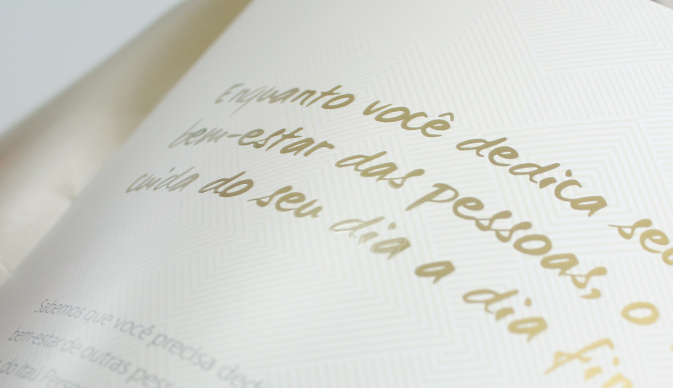 Enquanto você dedica seu
bem-estar das pessoas, o
cuida do seu dia a dia
Sabemos que você precisa
bem-estar de outras
do Itaú